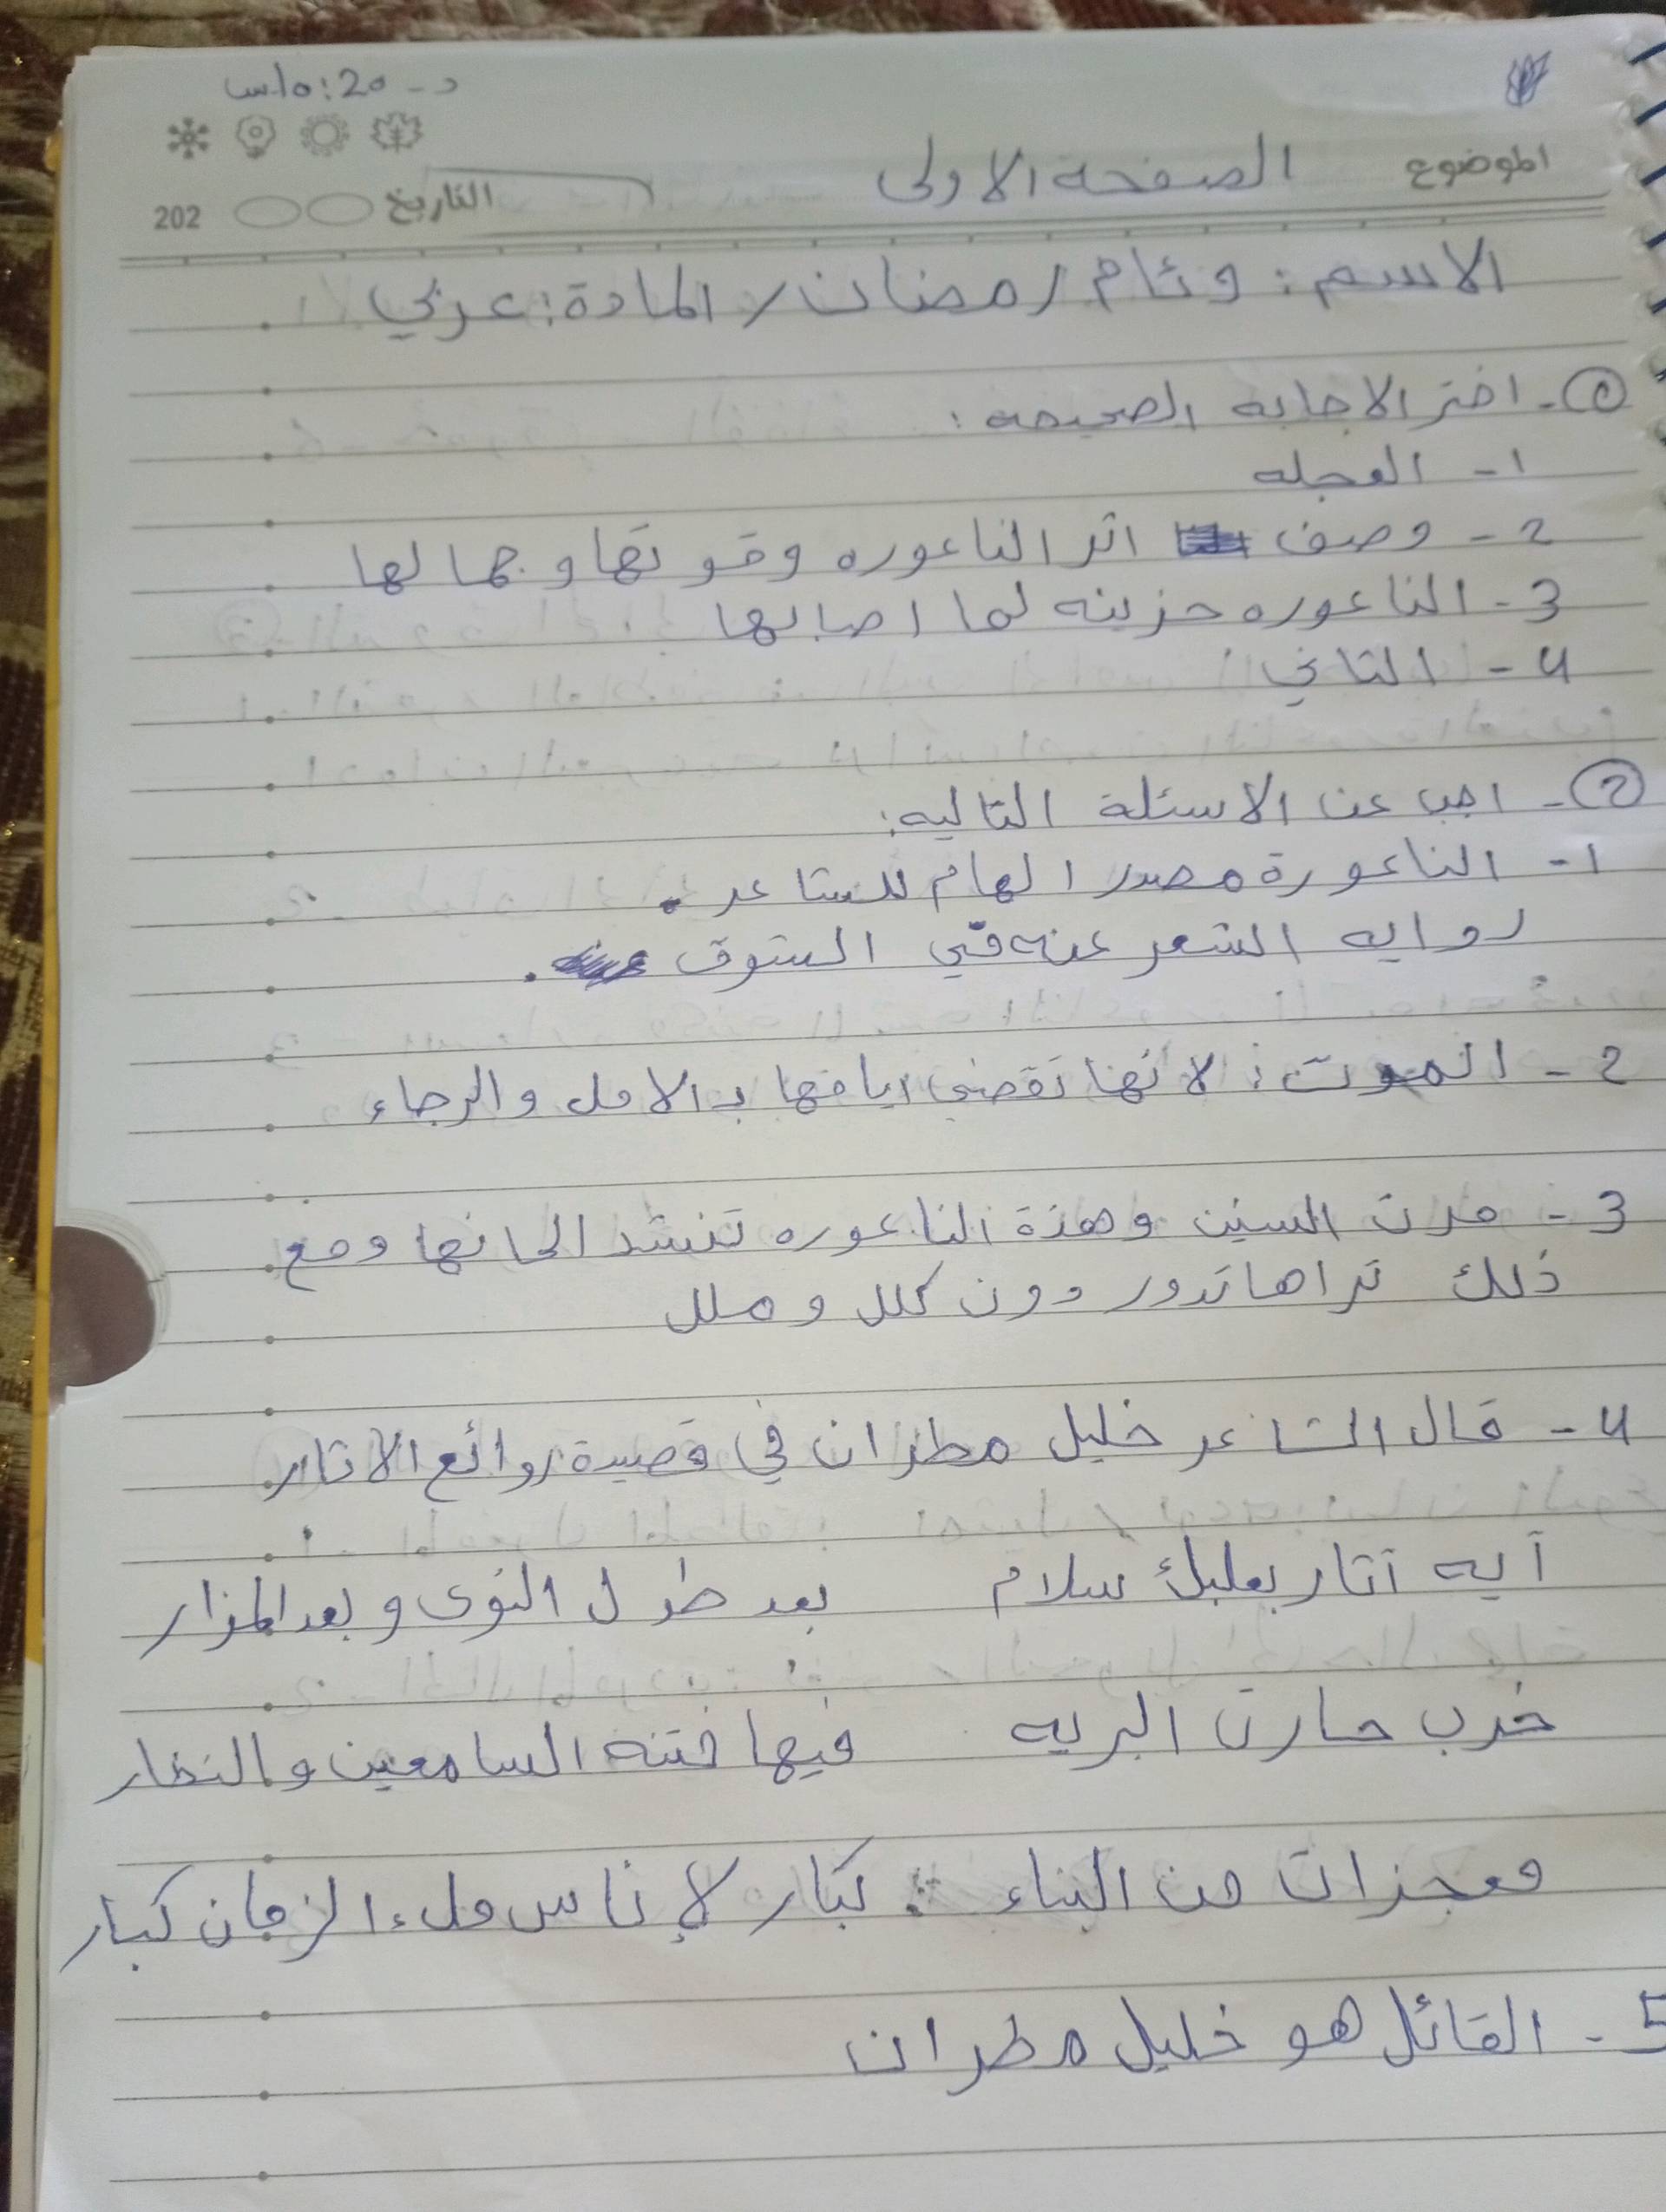 د - 10:20س
الموضوع الصفحة الاولى
التاريخ 202
الاسم: وئام رمضان / المادة: عربي
① - اختر الاجابه الصحيحه:
1 - العجله
2 - وصف اثر الناعوره وقوتها وجمالها
3 - الناعوره حزينه لما اصابها
4 - الثاني
② - اجب عن الاسئلة التاليه:
1 - الناعورة مصدر الهام للشاعر .
روايه الشعر عنه في الشوق .
2 - الموت: لانها تقضي ايامها بـ الامل والرجاء
3 - مرت السنين وهذة الناعوره تنشد الحانها ومع
ذلك تراها تدور دون كلل و ملل
4 - قال الشاعر خليل مطران في قصيدة روائع الاثار
آيه آثار بعلبك سلام بعد طول النوى و بعد المزار
خرب حارت البريه فيها فتنه السامعين والنظار
معجزات من البناء : كبار لإناس ملء الزمان كبار
5 - القائل هو خليل مطران